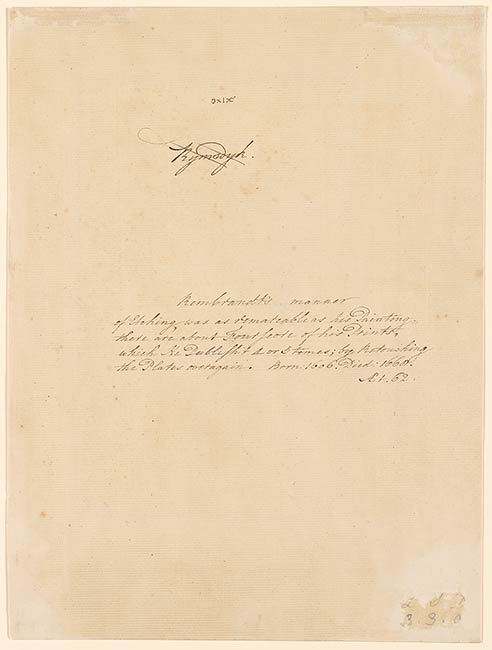 Rymsdyk.
Rembrandt's manner
of Etching, was as remarcable as his Painting,
there are about Fourscore of his Prints,
which He Publish't 4 or 5 times; by Retouching
the Plates overagain. Born. 1606. Died. 1668.
Æt. 62.
3. 3. 0